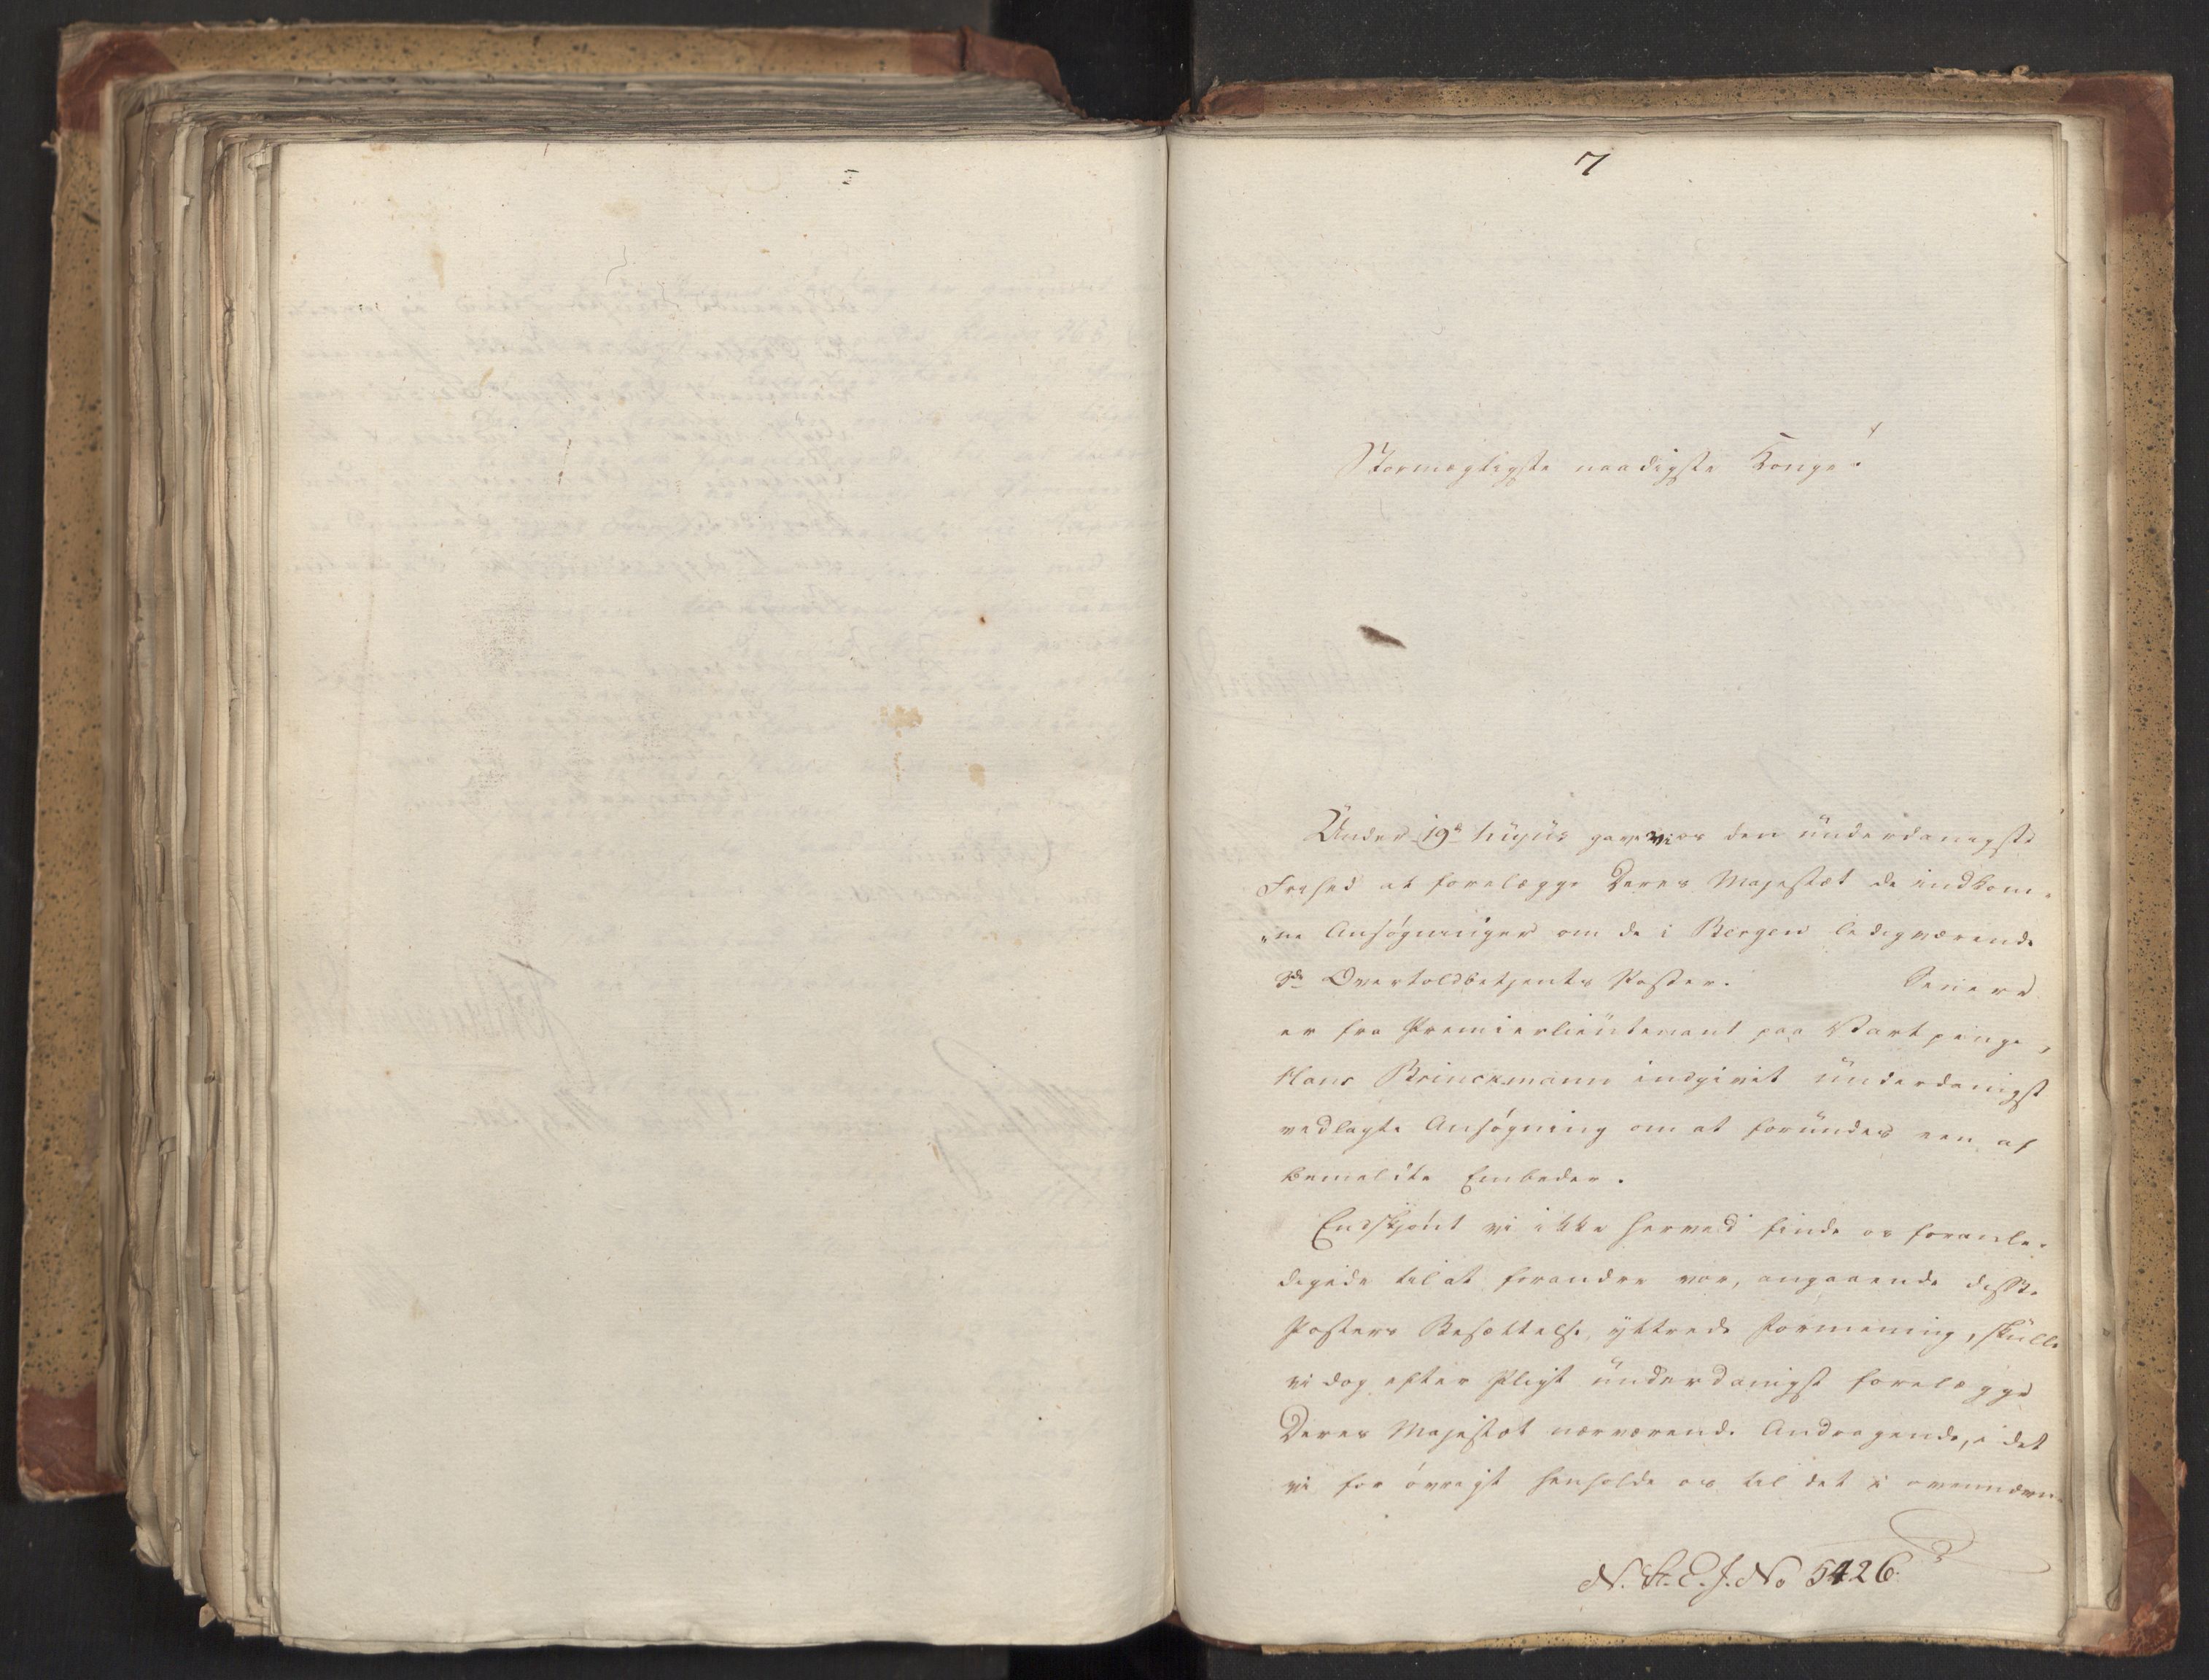 7
Stormægtigste naadigste Konge!
Under 19de hujus gave vi os den underdanigste
Frihed at forelægge Deres Majestæt de indkom-
"ne Ansøgninger om de i Bergen ledigværende
3de Overtoldbetjents Poster. Senere
er fra Premierlieutenant paa Vartpenge,
Hans Brinckmann indgivet underdanigst
vedlagte Ansøgning om at forundes een af
bemeldte Embeder.
Endskjønt vi ikke herved finde os foranle-
digede til at forandre vor, angaaende disse
Posters Besættelse, yttrede Formening, skulle
vi dog efter Pligt underdanigst forelægge
Deres Majestæt nærværende Andragende, i det
vi for øvrigt henholde os til det i ovennævn-
N. St. E. J. No 5426.